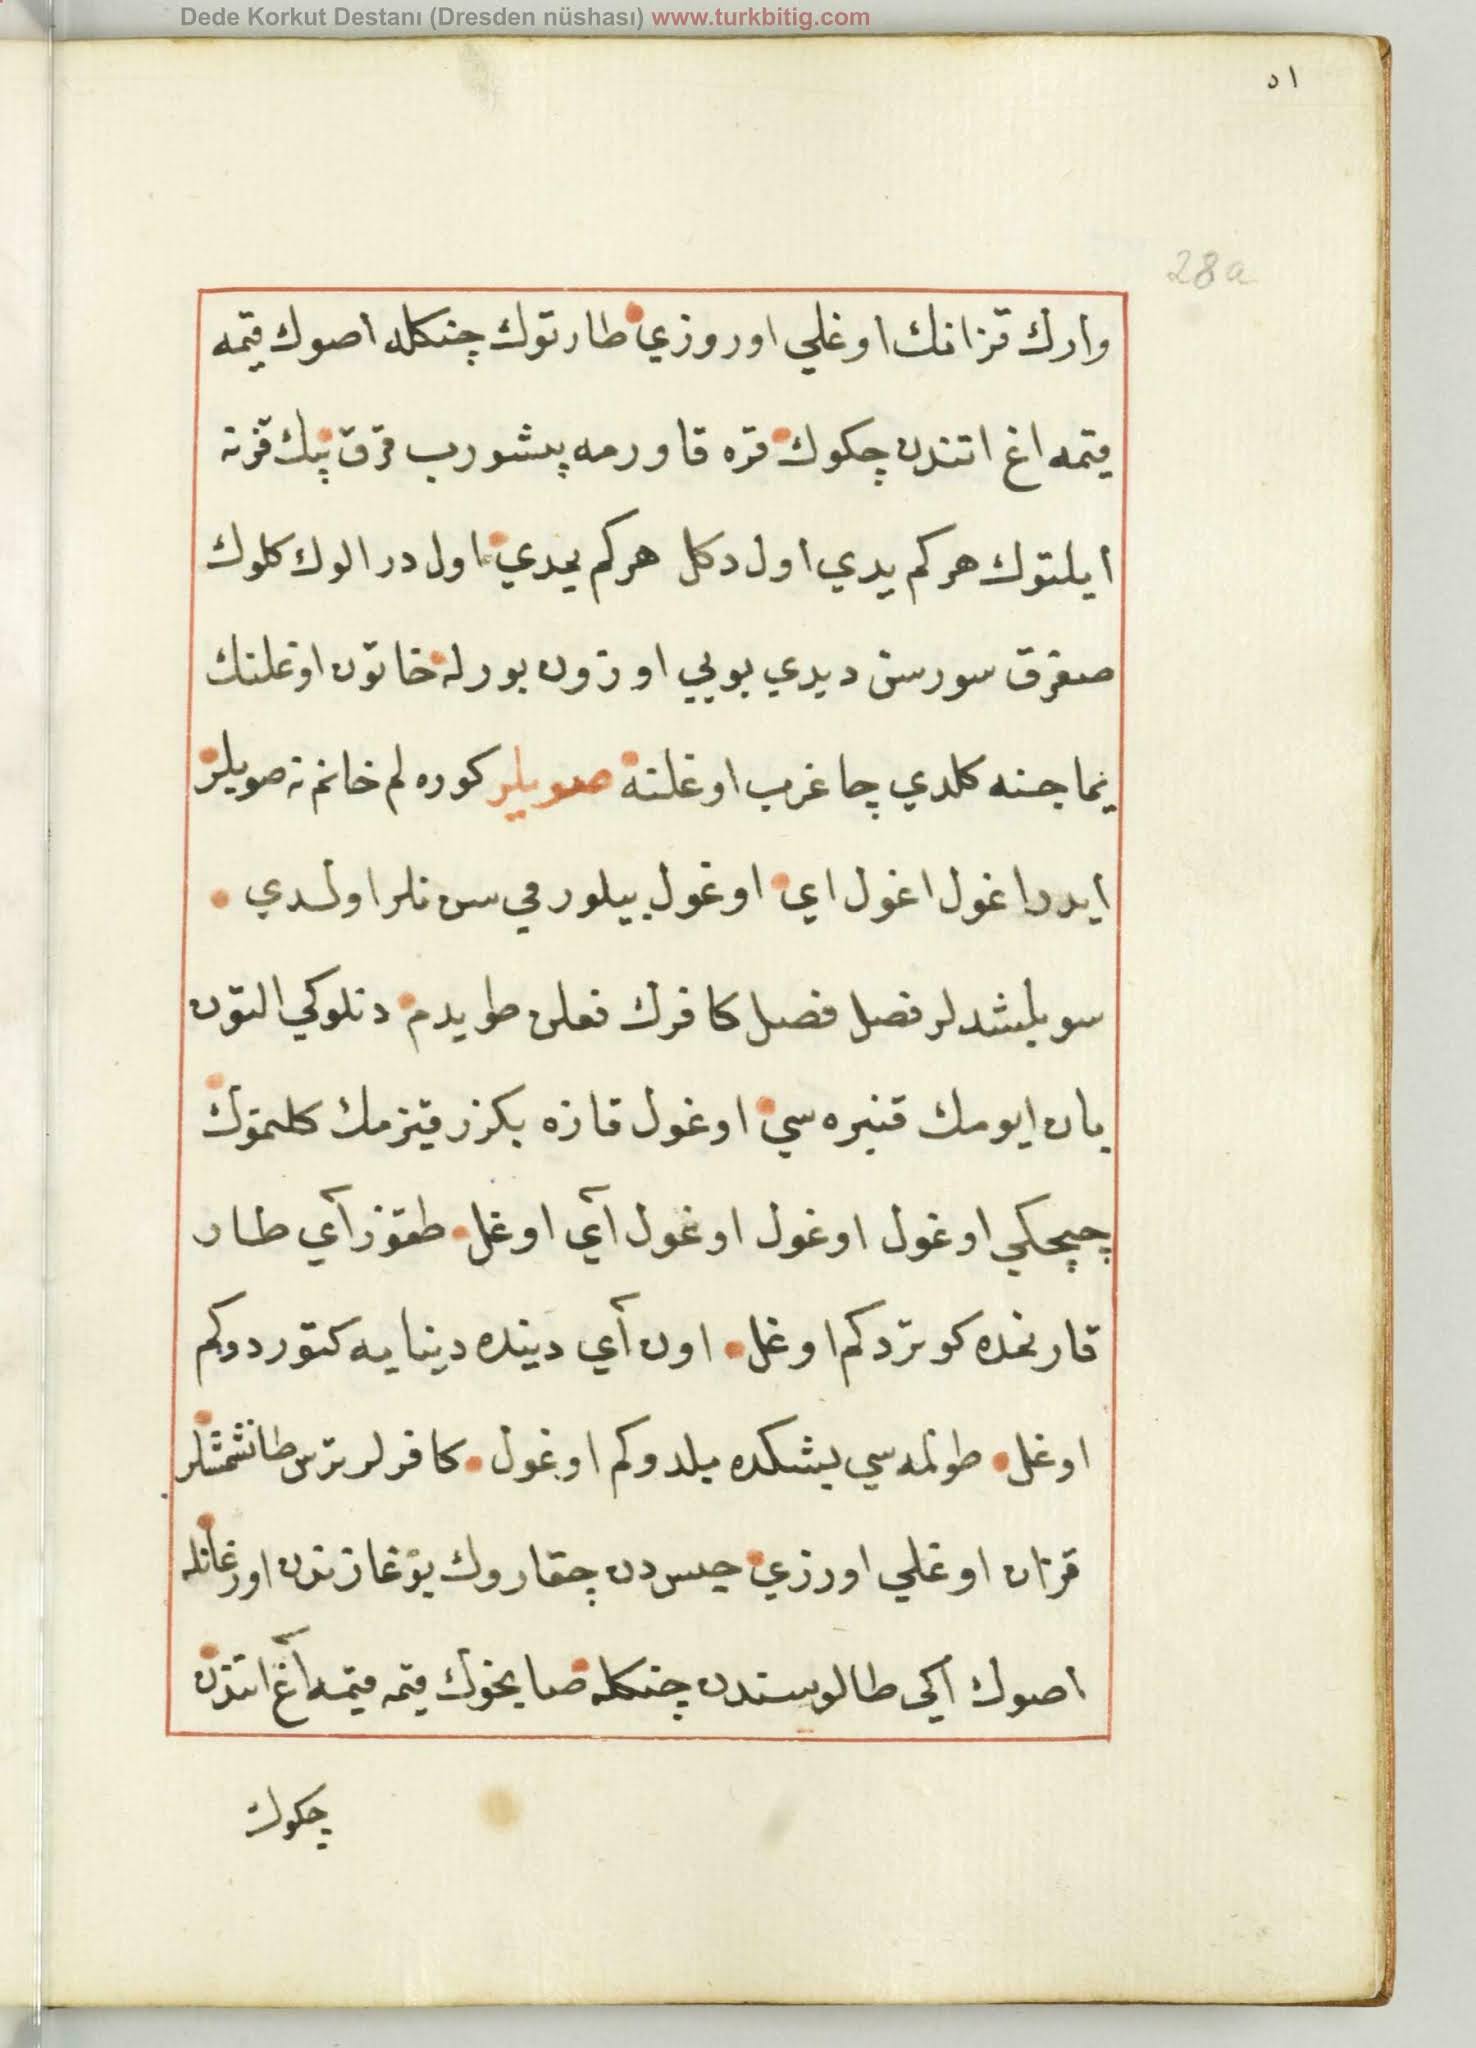 Dede Korkut Destanı (Dresden nüshası) www.turkbitig.com
٥١
28a
وارك قزانك اوغلي اوروزي طارتوك چنكله اصوك قيمه
قيمه اغ اتندن چكوك قره قاورمه پيشورب قرق بيك قزنه
ايلتوك هركم يدي اول دكل هركم يمدي اول در الوك كلوك
صغرق سورسن ديدي بويي اوزون بورله خاتون اوغلنك
يماجنه كلدي چاغرب اوغلنه صويلر كوره لم خانم نه صويلر
ايدر اغول اغول اي اوغول بيلورمي سن نلر اولدي
سويلشدلر فصل فصل كافرك فعلن طويدم دنلوكي التون
بان ايومك قنبره سي اوغول قازه بكزر قيزمك كلنموك
چيچكي اوغول اوغول اوغول آي اوغل طقوز آي طار
قارنمده كوتردكم اوغل اون آي دينده دينايه كتوردوكم
اوغل طونلمه سي بشكده بلدوكم اوغول كافرلر ترس طانشمشلر
قزان اوغلي اورزي حبس دن چقاروك بوغازندن اورغانله
اصوك ايكي طالوسندن چنكله صايخوك قيمه قيمه آغ اتندن
چكوك